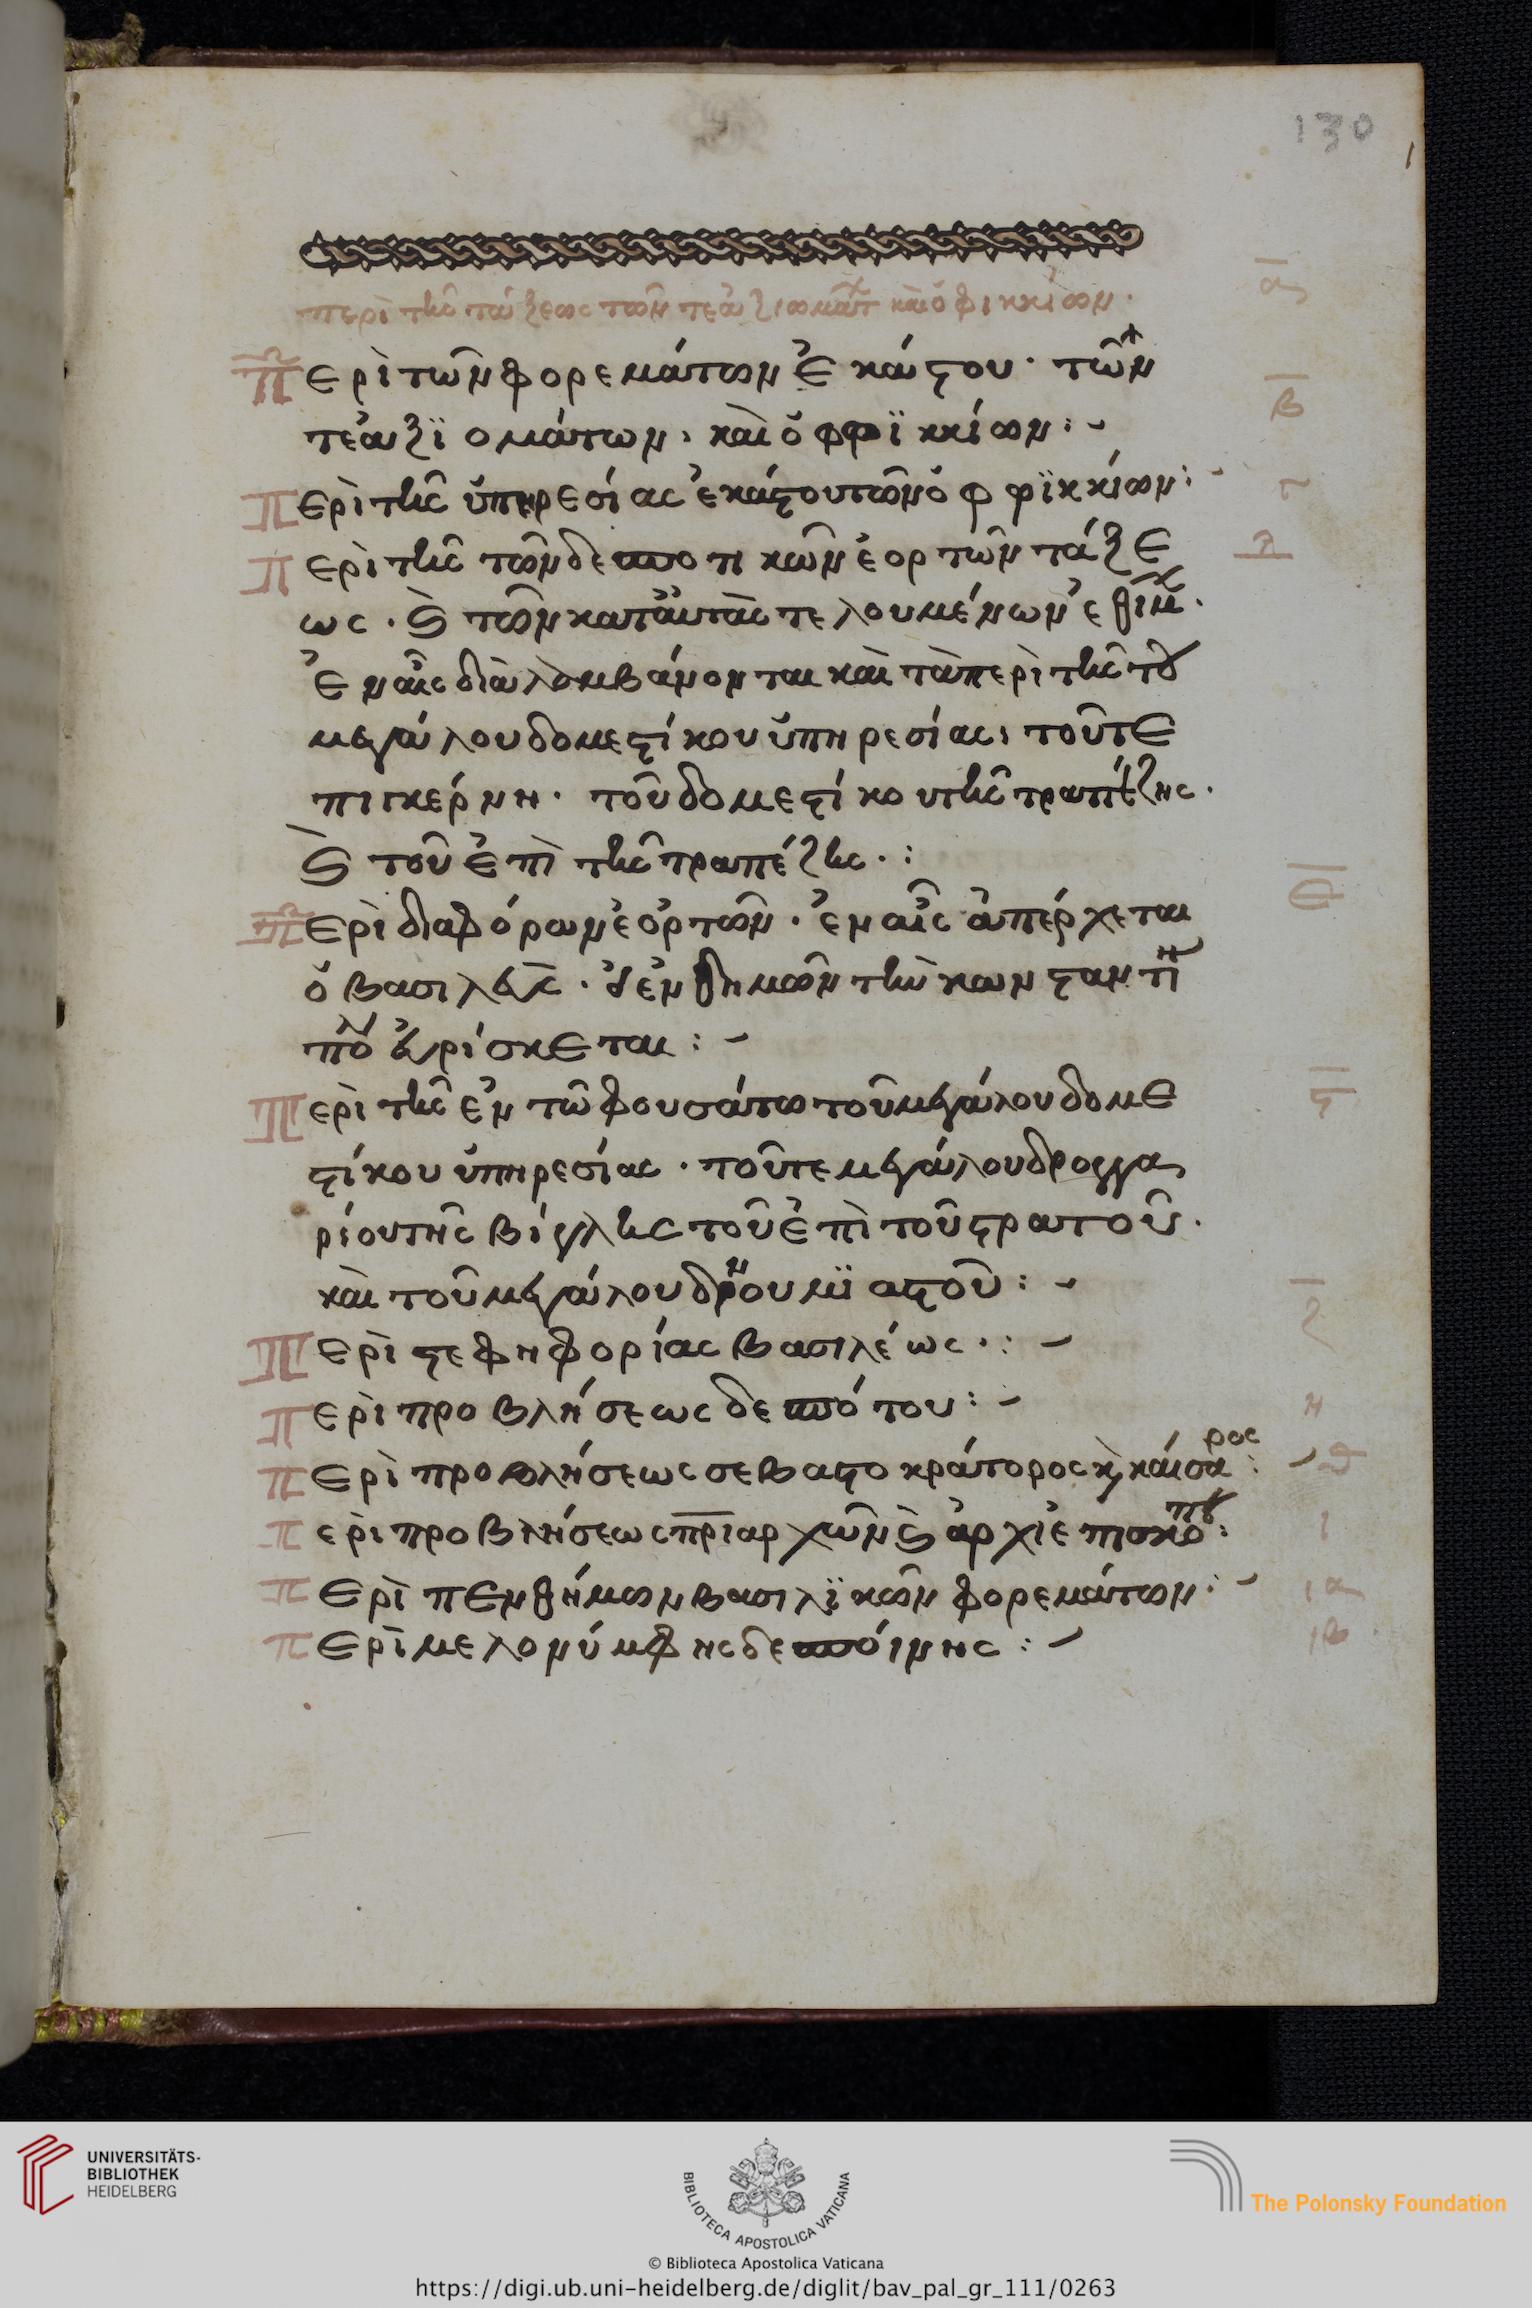 130
1
περὶ τῆς τάξεως τῶν τε ἀξιωμάτ καὶ ὀφικκίων·
α
Περὶ τῶν φορεμάτων ἑκάστου· τῶν
β
τε ἀξϊομάτων, καὶ ὀφφϊκκίων:-
Περὶ τῆς ὑπηρεσίας ἑκάστου τῶν ὀφφϊκκίων:-
γ
Περὶ τῆς τῶν δεσποτικῶν ἑορτῶν τάξε
δ
ως· καὶ τῶν κατ' αὐτὰς τελουμένων ἐθίμ·
ἐν αἷς διαλαμβάνονται καὶ τὰ περὶ τῆς τοῦ
μεγάλου δομεστίκου ὑπηρεσίας, τοῦ τε
πιγκέρνη· τοῦ δομεστίκου τῆς τραπέζης·
καὶ τοῦ ἐπὶ τῆς τραπέζης·:
ε
Περὶ διαφόρων ἑορτῶν· ἐν αἷς ἀπέρχεται
ὁ βασιλεὺς· ὁ ἐνθημῶν τῆ κωνσταντι
πόλ εὑρίσκεται:-
Περὶ τῆς ἐν τῶ φουσάτω τοῦ μεγάλου δομε
ς
στίκου ὑπηρεσίας· τοῦ τε μεγάλου δρογγα
ρίου τῆς βίγλης τοῦ ἐπὶ τοῦ στρατοῦ·
καὶ τοῦ μεγάλου δρουμϊαστοῦ:-
Περὶ στεφηφορίας βασιλέως·:-
ζ
Περὶ προβλήσεως δεσπότου:-
η
Περὶ προβλήσεως σεβαστοκράτορος κὲ καίσαρος:-
θ
Περὶ προβλήσεως πριαρχῶν καὶ ἀρχιεπισκόπου:
ι
Περὶ πενθήμων βασιλϊκῶν φορεμάτων:-
ια
Περὶ μελονύμφης δεσποίνης:-
ιβ
UNIVERSITÄTS-
BIBLIOTHEK
HEIDELBERG
BIBLIOTECA APOSTOLICA VATICANA
The Polonsky Foundation
© Biblioteca Apostolica Vaticana
https://digi.ub.uni-heidelberg.de/diglit/bav_pal_gr_111/0263